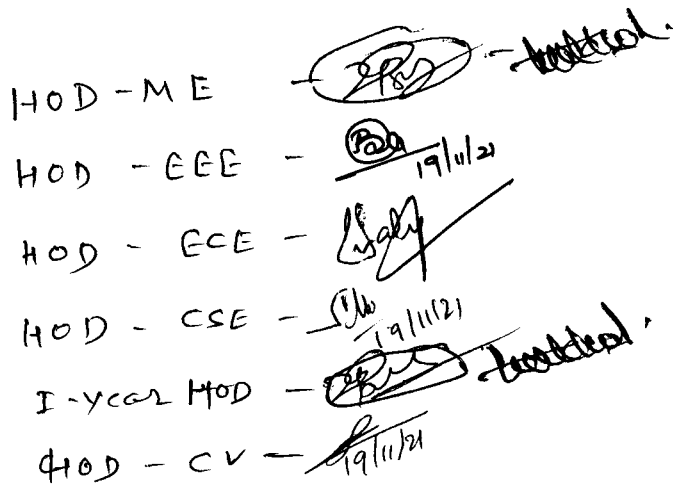 HOD - ME -
HOD - EEE - 19/11/21
HOD - ECE -
HOD - CSE - 19/11/21
I-year HOD -
HOD - CV - 19/11/21